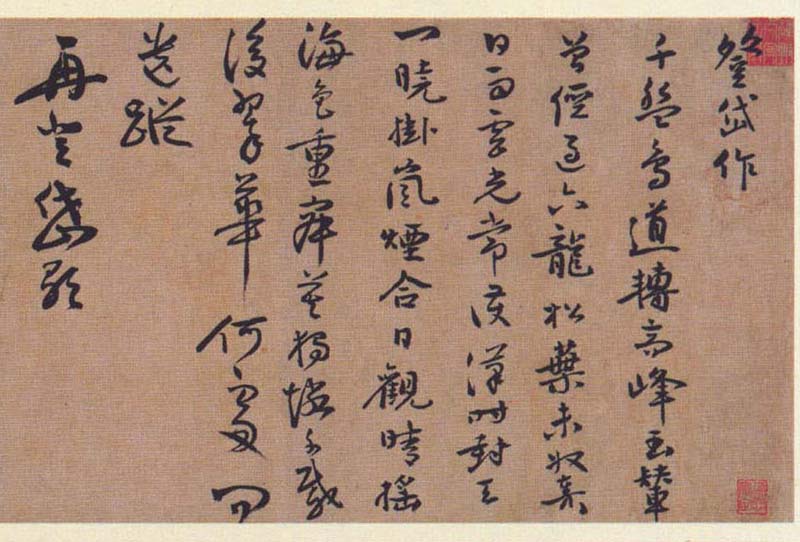 登岱作
千盤鳥道轉高峰玉輦
曾經過六龍松葉未收秦
日雨雲光常護漢時封天
門曉掛嵐煙合日觀晴搖
海色重寂莫獨憐千載
後翠華何處問
遺蹤
再登岱